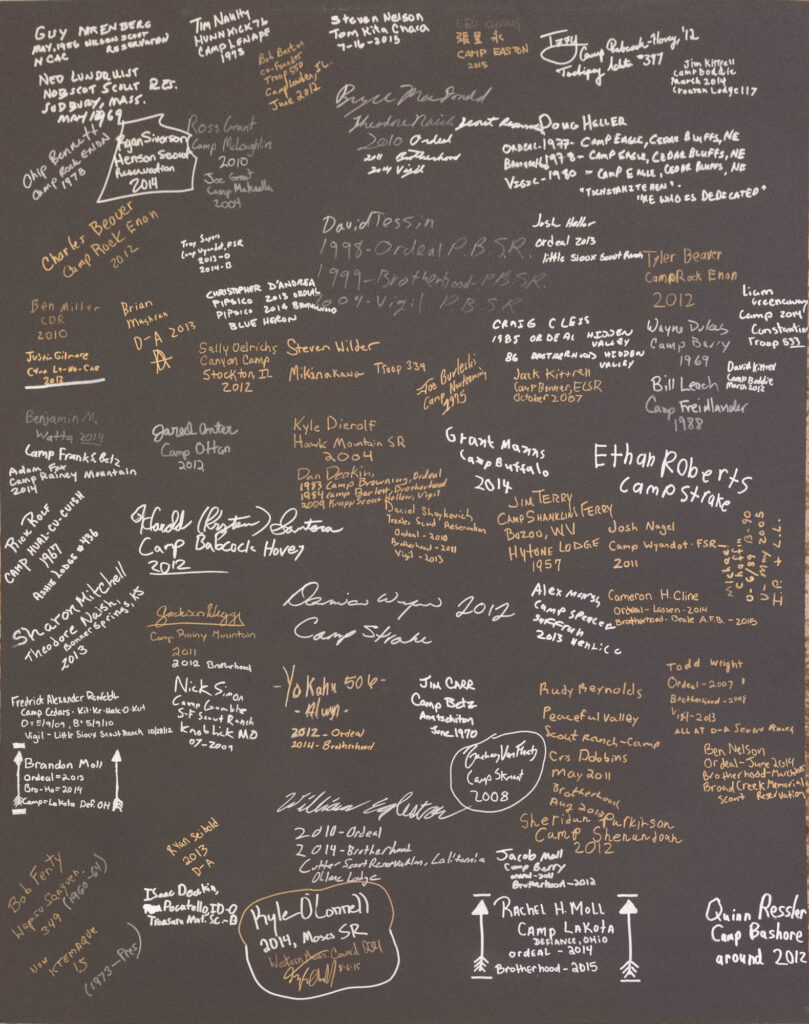 GUY NIRENBERG
MAY, 1956 WILSON SCOUT
RESERVATION
NCAC
TIM NAULTY
CAMP LENAPE
1993
STEVEN NELSON
TOM KITA CHARA
7-16-2015
LEO CHANG
CAMP EASTON
2015
Izzy
Camp Babcock-Hovey, '12
#397
Jim Kittrell
Camp Boddie
March 2014
Croatan Lodge 117
NED LUNDQUIST
NOBSCOT SCOUT RES.
SUDBURY, MASS.
MAY 1969
Bob Barton
Co-Founder
Troop 550
June 2012
Bryce MacDonald
Chip Bennett
Camp Rock Enon
1978
Ryan Sivorson
Henson Scout
Reservation
2014
Ross Grant
Camp McLoughlin
2010
Joe Grant
Camp
2004
Theodore Naish
2010 Ordeal
2011 Brotherhood
2014 Vigil
DOUG HELLER
ORDEAL-1977- CAMP EAGLE, CEDAR BLUFFS, NE
1978 - CAMP EAGLE, CEDAR BLUFFS, NE
VIGIL-1980 - CAMP EAGLE, CEDAR BLUFFS, NE
"HE WHO IS DEDICATED"
Charles Beaver
Camp Rock Enon
2012
Troy
Camp Wyandot, FSR
2013-O
2014-B
David Tessin
1998-Ordeal P.B.S.R.
1999-Brotherhood P.B.S.R.
2004-Vigil P.B.S.R
Josh Heller
ordeal 2013
little Sioux Scout Ranch
Tyler Beaver
Camp Rock Enon
2012
Ben Miller
CDR
2010
Brian
D-A 2013
CHRISTOPHER D'ANDREA
PIPSICO 2013 ORDEAL
PIPSICO 2014 BROTHERHOOD
BLUE HERON
Liam
Greenaway
Camp 2014
Constantin
Troop 533
Justin Gilmore
Camp Ly-No-Cae
2012
Sally Oelrichs
Canyon Camp
Stockton IL
2012
Steven Wilder
Mikanakawa
Troop 339
Joe Burleski
1975
CRAIG CLESS
1985 ORDEAL HIDDEN
VALLEY
86 BROTHERHOOD HIDDEN
VALLEY
Jack Kittrell
Camp Bonner, ECSR
October 2007
Wayne Dukes
Camp Berry
1969
Bill Leach
Camp Freidlander
1988
David Kittrell
Camp Boddie
March 2012
Benjamin M.
Watts 2014
Camp Frank S Betz
Adam Fox
Camp Rainey Mountain
2014
Jared
Camp Ottari
2012
Kyle Dierolf
Hawk Mountain SR
2004
Dan Deakin,
1983 Camp Browning, Ordeal
1984 Camp Bartlett, Brotherhood
2009 Krupp Scout Hollow, Vigil
Grant Manns
Camp Buffalo
2014
Ethan Roberts
Camp Strake
Rick Rolf
CAMP HUAL-CU-CUISH
1967
AHWE LODGE #436
Harold Santora
Camp Babcock Hovey
2012
Daniel
Trexler Scout Reservation
Ordeal - 2010
Brotherhood - 2011
Vigil - 2013
JIM TERRY
CAMP SHANKLIN FERRY
BOZOO, WV
HYTONE LODGE
1957
Josh Nagel
Camp Wyandot-FSR
2011
Michael
Chaffin
O- 6/89 B- 90
V- May 2005
Sharon Mitchell
Theodore Naish,
Bonner Springs, KS
2013
Camp Rainy Mountain
2011
2012 Brotherhood
2012
Camp Strake
Alex
Camp Spencer
2013
Cameron H. Cline
Ordeal-Lassen-2014
Brotherhood-Beale A.F.B.-2015
Fredrick Alexander
Camp Cedars - Kit-Ke-Hak-O-Kut
O=5/9/09, B=5/9/10
Vigil - Little Sioux Scout Ranch 10/23/12
Nick Simon
Camp Gamble
S-F Scout Ranch
Knoblick MO
07-2009
-Yo Kahu 506-
2012 - Ordeal
2014 - Brotherhood
JIM CARR
CAMP BETZ
June 1970
Rudy Reynolds
Peaceful Valley
Scout Ranch-Camp
Cris Dobbins
May 2011
Brotherhood
Aug 2012
Todd Wright
Ordeal-2007
Brotherhood-2008
Vigil-2013
ALL AT D-A SCOUT RANCH
Brandon Moll
Ordeal=2013
Bro-Ho=2014
Camp=Lakota Def. OH
Zachary
Camp
2008
Ben Nelson
Ordeal-June 2014
Brotherhood-March 2015
Broad Creek Memorial
Scout Reservation
William Egleston
2010-Ordeal
2014-Brotherhood
Cutter Scout Reservation, California
Ohlone Lodge
Sheridan Parkinson
Camp Shenandoah
2012
Bob Fenty
349 (1960-64)
Now KTEMAQUE
15
(1973-Pres)
Ryan Seibold
2013
D-A
Isaac Deakin,
Pocatello, ID-O
Treasure Mnt. SC.-B
Jacob Moll
Camp Berry
ordeal-2011
Brotherhood-2012
Kyle O'Connell
2014, Moses SR
Western Mass. Council 234
8-6-15
RACHEL H. MOLL
CAMP LAKOTA
DEFIANCE, OHIO
ORDEAL - 2014
Brotherhood - 2015
Quinn Ressler
Camp Bashore
around 2012